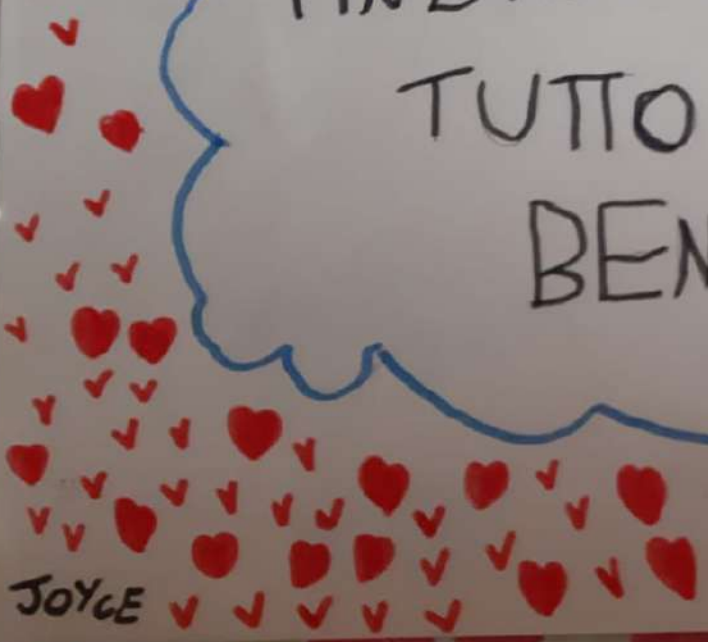 TUTTO
BEN
JOYCE